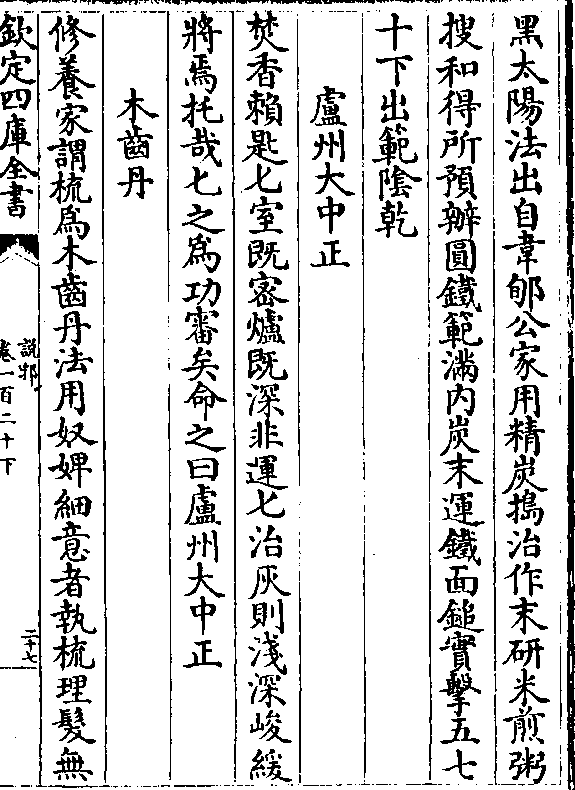 黑太陽法出自韋郇公家用精炭搗治作末研米煎粥
搜和得所預辦圓鐵範滿內炭末運鐵面鎚實擊五七
十下出範陰乾
盧州大中正
焚香賴匙匕室既密爐既深非運匕治灰則淺深峻緩
將焉托哉匕之為功審矣命之曰盧州大中正
木齒丹
修養家謂梳為木齒丹法用奴婢細意者執梳理髮無
欽定四庫全書
說郛
卷一百二十下
二十七